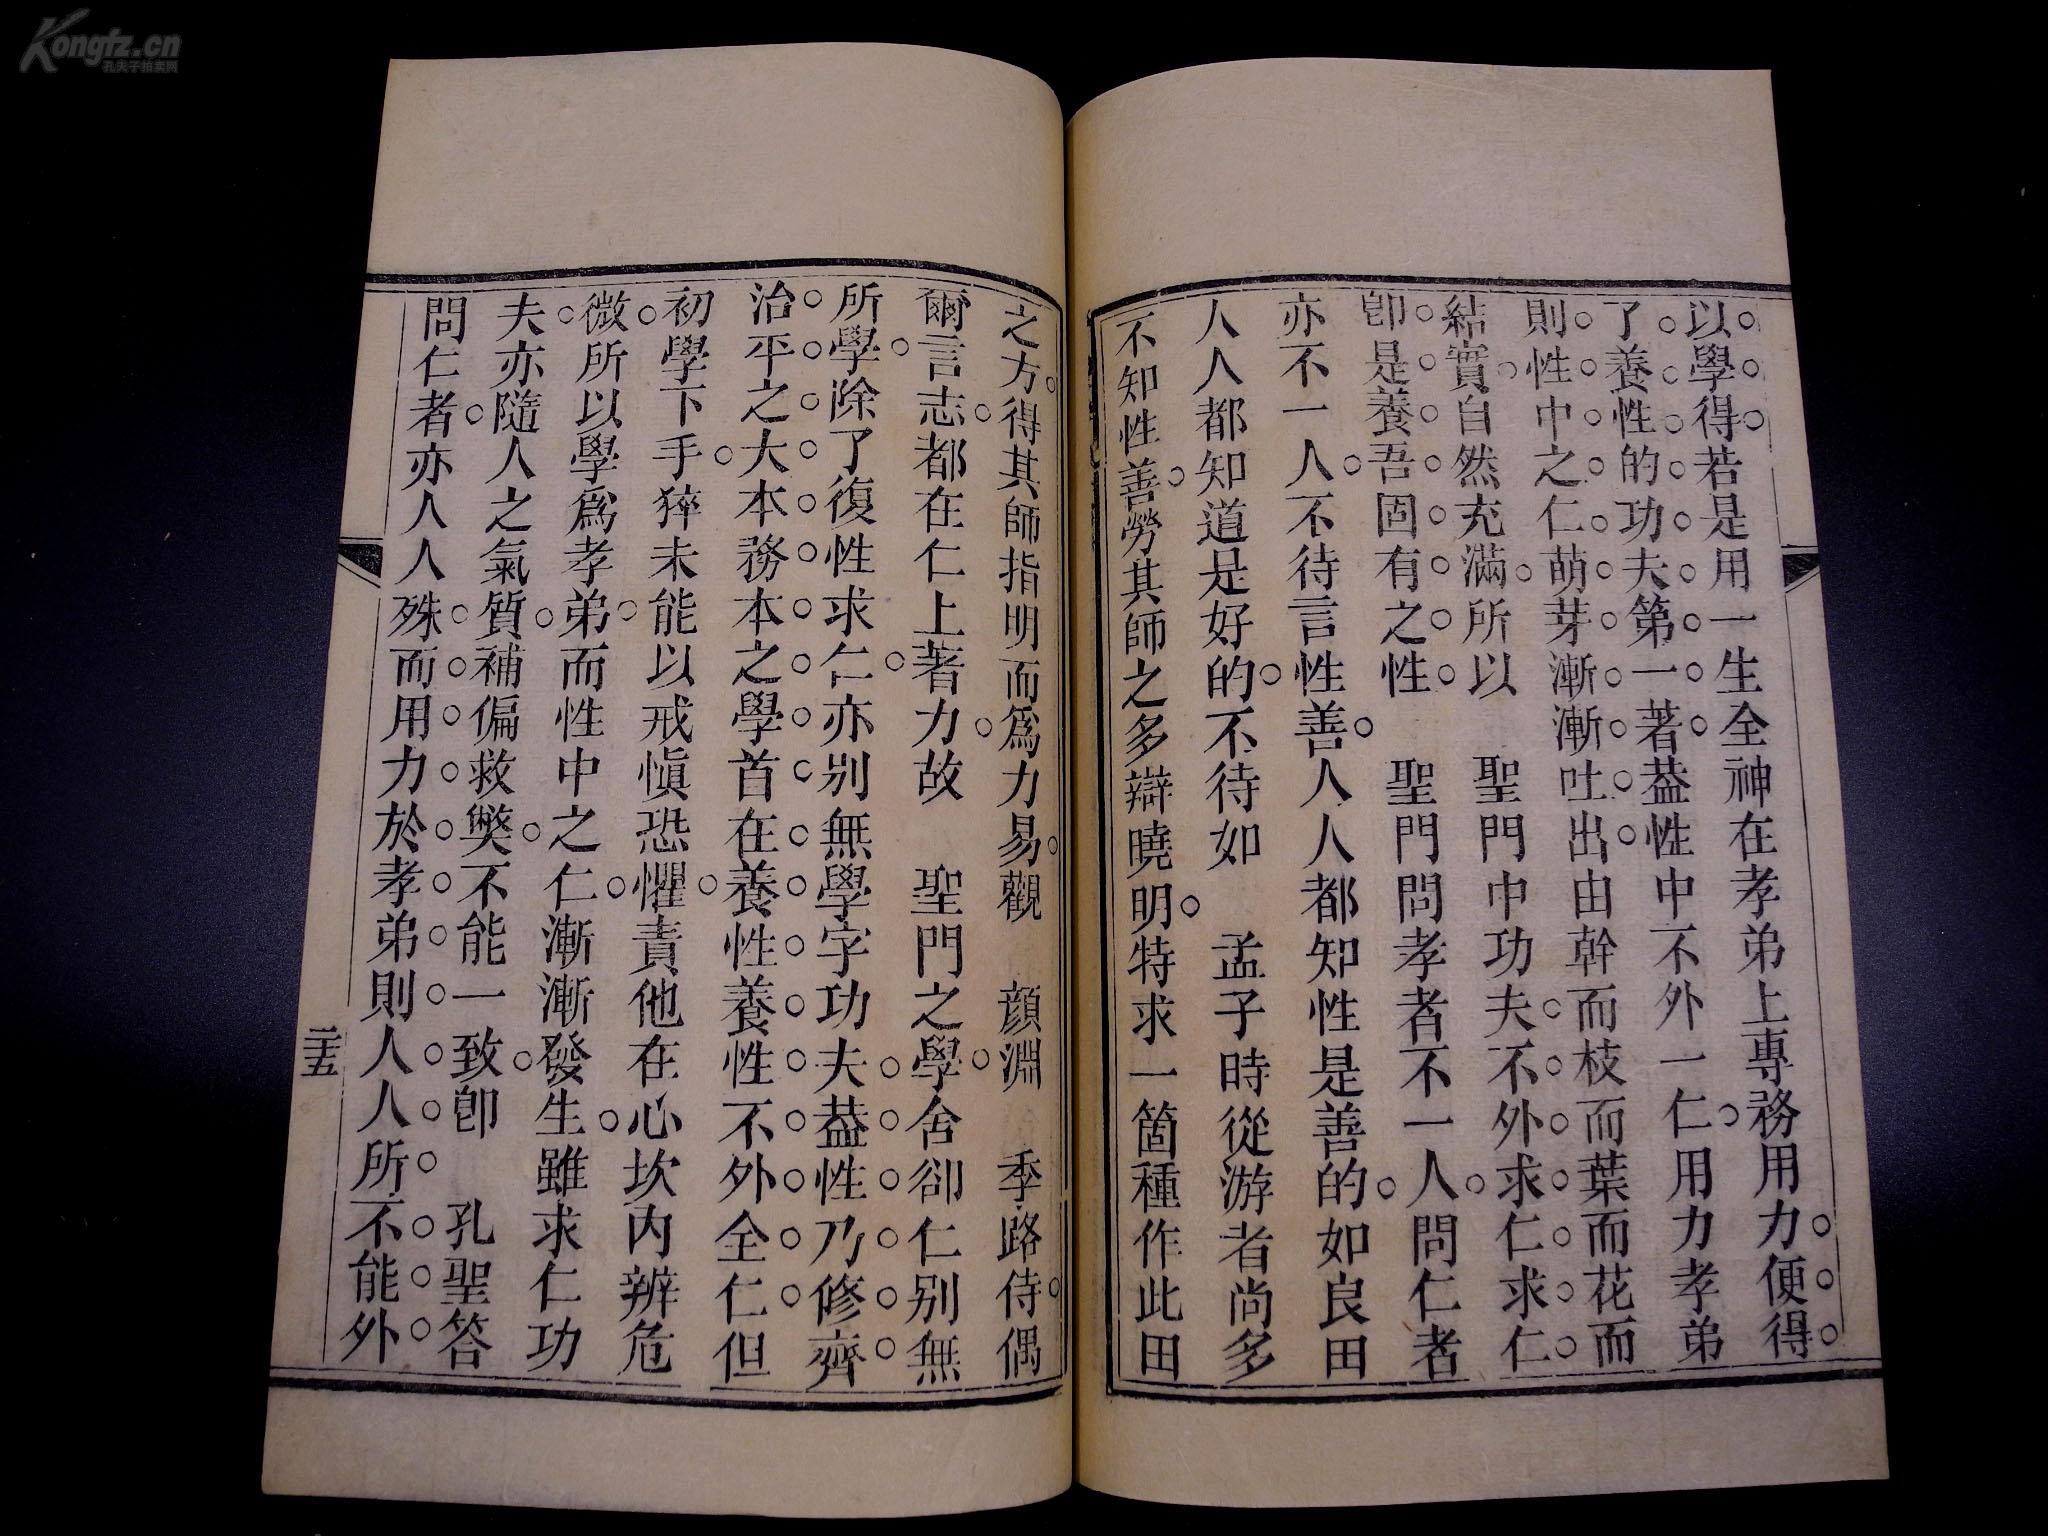 Kongfz.cn
孔夫子拍卖网
以學得若是用一生全神在孝弟上專務用力便得
了養性的功夫第一著葢性中不外一仁用力孝弟
則性中之仁萌芽漸漸吐出由幹而枝而葉而花而
結實自然充滿所以　聖門中功夫不外求仁求仁
卽是養吾固有之性　聖門問孝者不一人問仁者
亦不一人不待言性善人人都知性是善的如良田
人人都知道是好的不待如　孟子時從游者尚多
不知性善勞其師之多辯曉明特求一箇種作此田
之方得其師指明而爲力易觀　顔淵　季路侍偶
爾言志都在仁上著力故　聖門之學舍卻仁別無
所學除了復性求仁亦別無學字功夫葢性乃修齊
治平之大本務本之學首在養性養性不外全仁但
初學下手猝未能以戒愼恐懼責他在心坎内辨危
微所以學爲孝弟而性中之仁漸漸發生雖求仁功
夫亦隨人之氣質補偏救獘不能一致卽　孔聖答
問仁者亦人人殊而用力於孝弟則人人所不能外
二十五